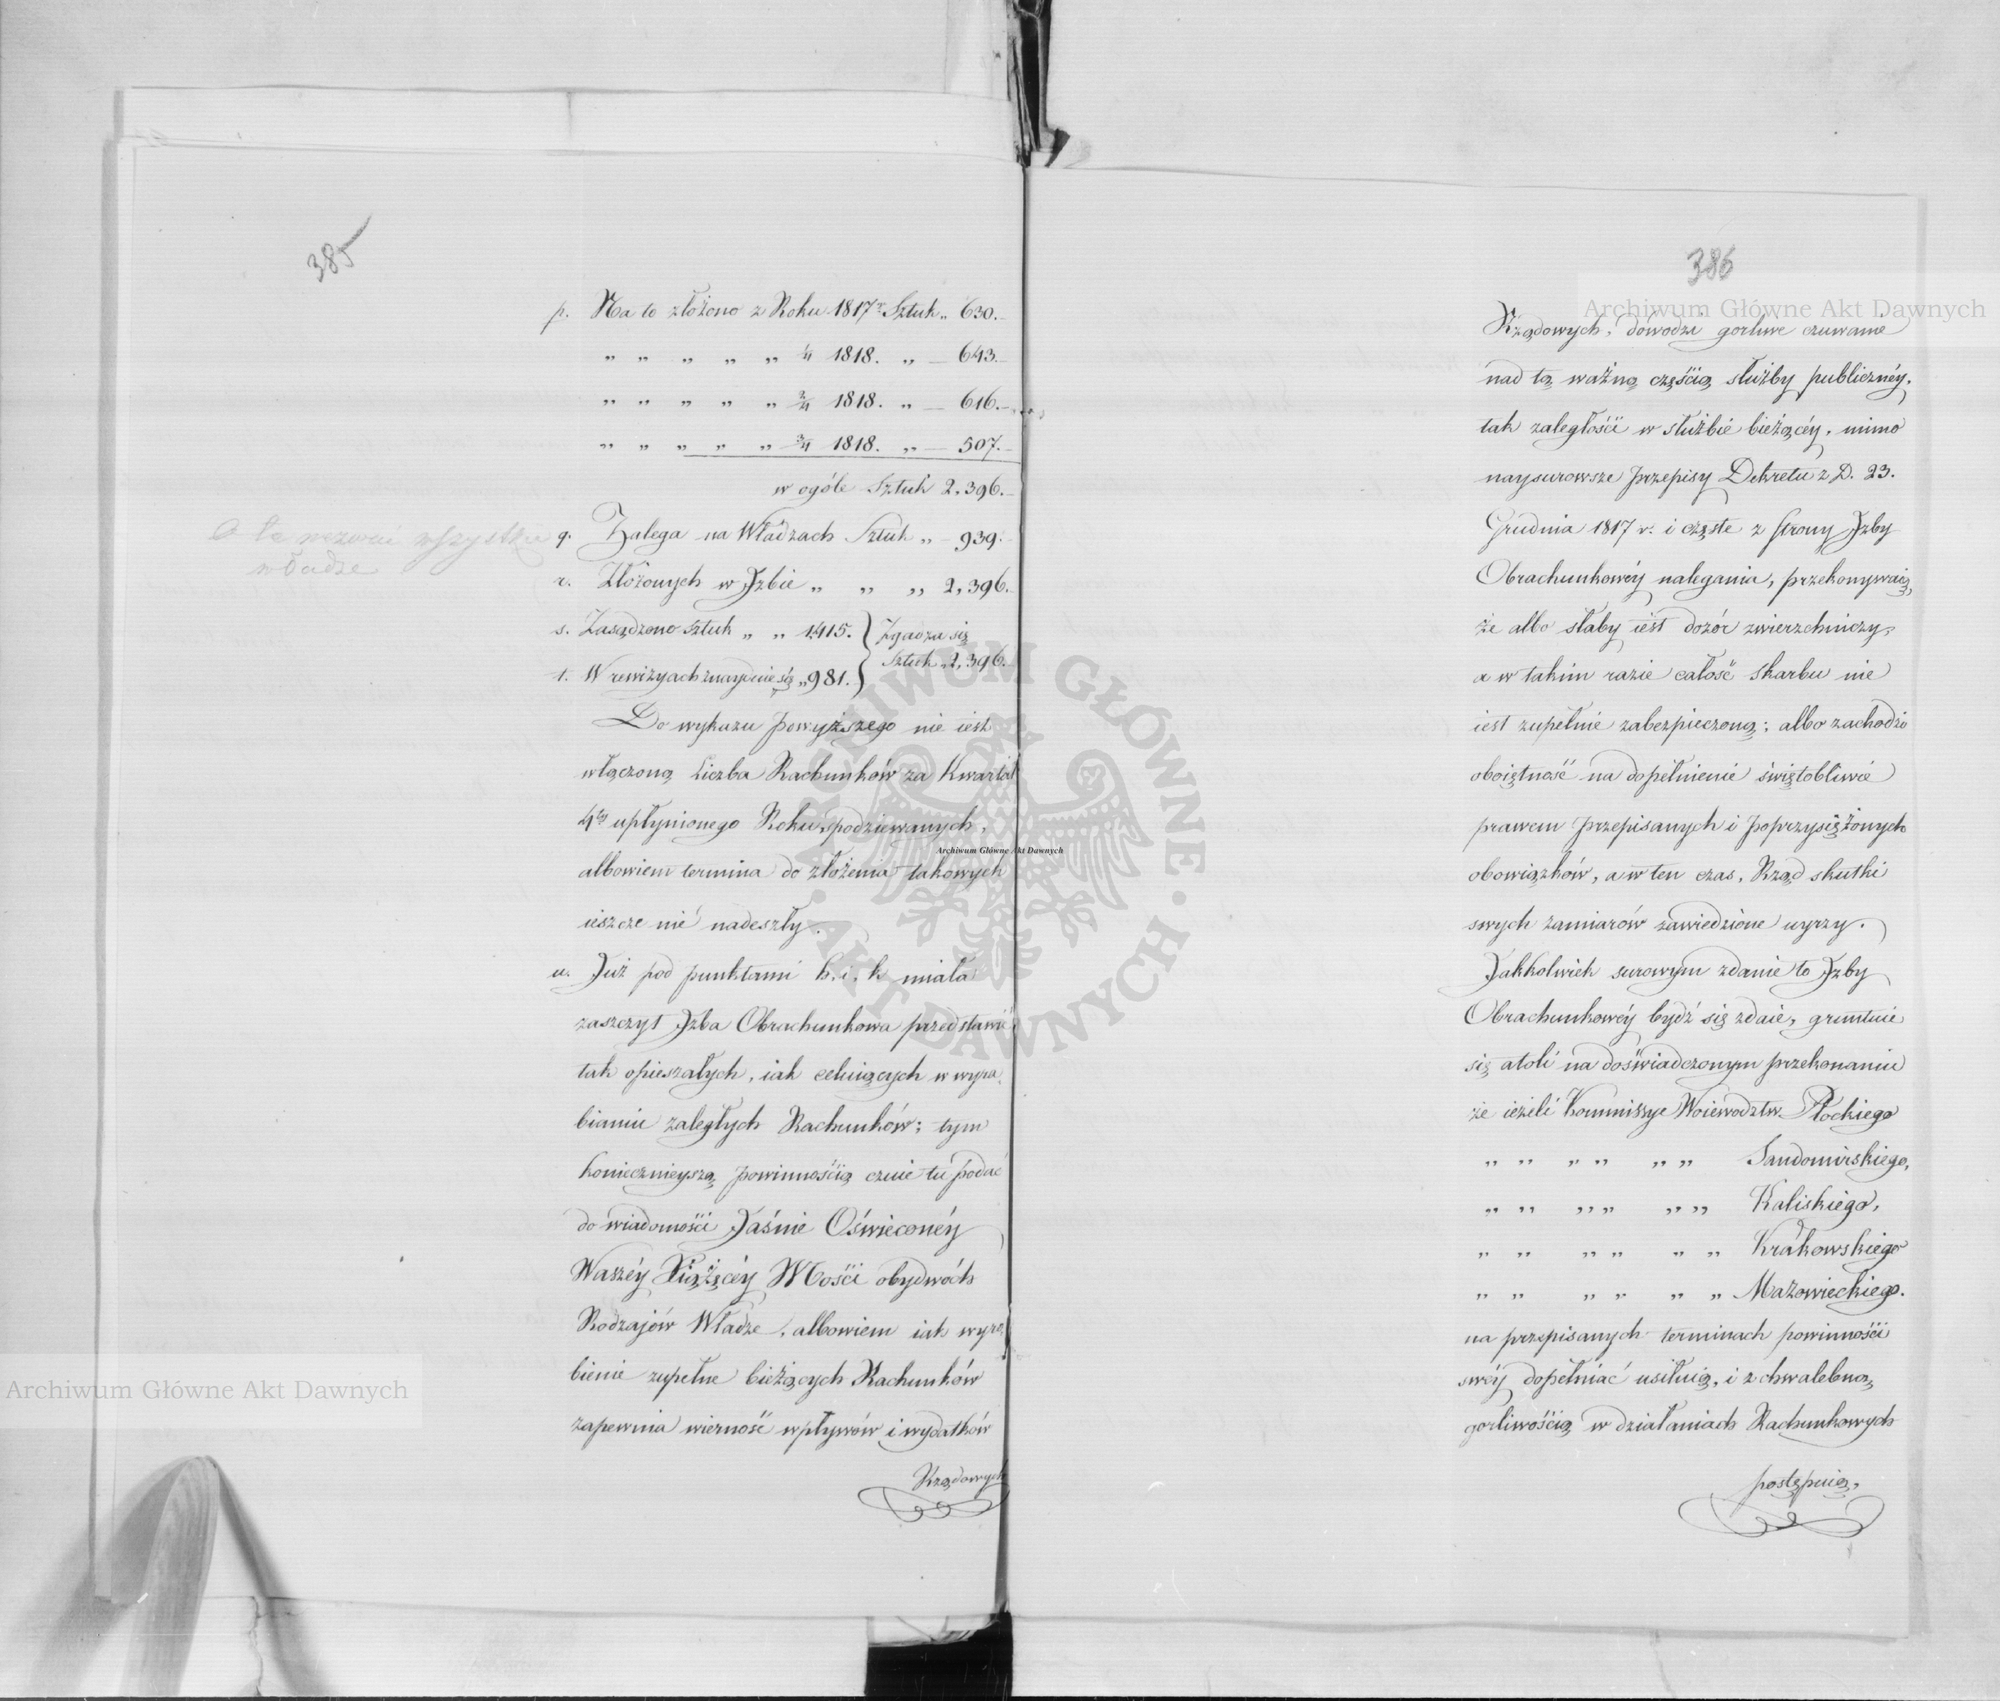 385
p. Na to złożono z Roku 1817 r. Sztuk „ 630.
„ „ „ „ „ 1/4 1818. „ — 643.
„ „ „ „ „ 2/4 1818. „ — 616.
„ „ „ „ „ 3/4 1818. „ — 507.
w ogóle Sztuk 2,396.
O te wezwać wszystkie
władze
q. Zalega na Władzach Sztuk „ — 939.
r. Złożonych w Izbie „ „ „ 2,396.
s. Zasądzono sztuk „ „ 1415. } Zgadza się
t. W rewizyach znayduie się „ 981. } Sztuk „ 2,396.
Do wykazu powyższego nie iest
włączoną Liczba Rachunków za Kwartał
4ty upłynionego Roku, spodziewanych,
albowiem termina do złożenia takowych
ieszcze nie nadeszły.
u. Już pod punktami h. i. k miała
zaszczyt Izba Obrachunkowa przedstawić
tak opieszałych, iak celuiących w wyra-
bianiu zaległych Rachunków; tym
koniecznieyszą powinnością czuie tu podać
do wiadomości Jaśnie Oświeconéy
Waszéy Xiążęcéy Mości obydwóch
Rodzajów Władze, albowiem iak wyro-
bienie zupełne bieżących Rachunków
zapewnia wierność wpływów i wydatków
Rządowych
386
Rządowych, dowodzi gorliwe czuwanie
nad tą ważną częścią służby publicznéy,
tak zaległości w służbie bieżącéy, mimo
naysurowsze przepisy Dekretu z D. 23.
Grudnia 1817 r. i częste z strony Izby
Obrachunkowéy nalegania, przekonywaią,
że albo słaby iest dozór zwierzchniczy,
a w takim razie całość skarbu nie
iest zupełnie zabezpieczoną; albo zachodzi
oboiętność na dopełnienie świętobliwie
prawem przepisanych i poprzysiężonych
obowiązków, a w ten czas, Rząd skutki
swych zamiarów zawiedzione uyrzy.
Jakkolwiek surowym zdanie to Izby
Obrachunkowéy bydź się zdaie, gruntuie
się atoli na doświadczonym przekonaniu
że ieżeli Kommissye Woiewództw Płockiego
„ „ „ „ „ „ Sandomirskiego,
„ „ „ „ „ „ Kaliskiego,
„ „ „ „ „ „ Krakowskiego
„ „ „ „ „ „ Mazowieckiego.
na przepisanych terminach powinności
swéy dopełniać usiłuią, i z chwalebną
gorliwością w działaniach Rachunkowych
postępuią,
Archiwum Główne Akt Dawnych
Archiwum Główne Akt Dawnych
Archiwum Główne Akt Dawnych
ARCHIWUM GŁÓWNE · AKT DAWNYCH ·